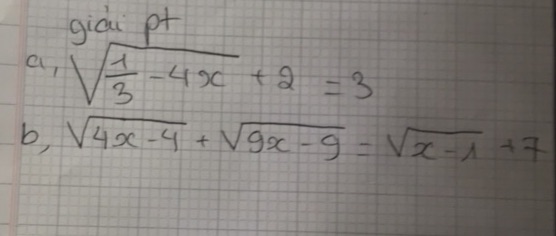 giải pt
a, √(1/3 - 4x) + 2 = 3
b, √(4x-4) + √(9x-9) = √(x-1) + 7